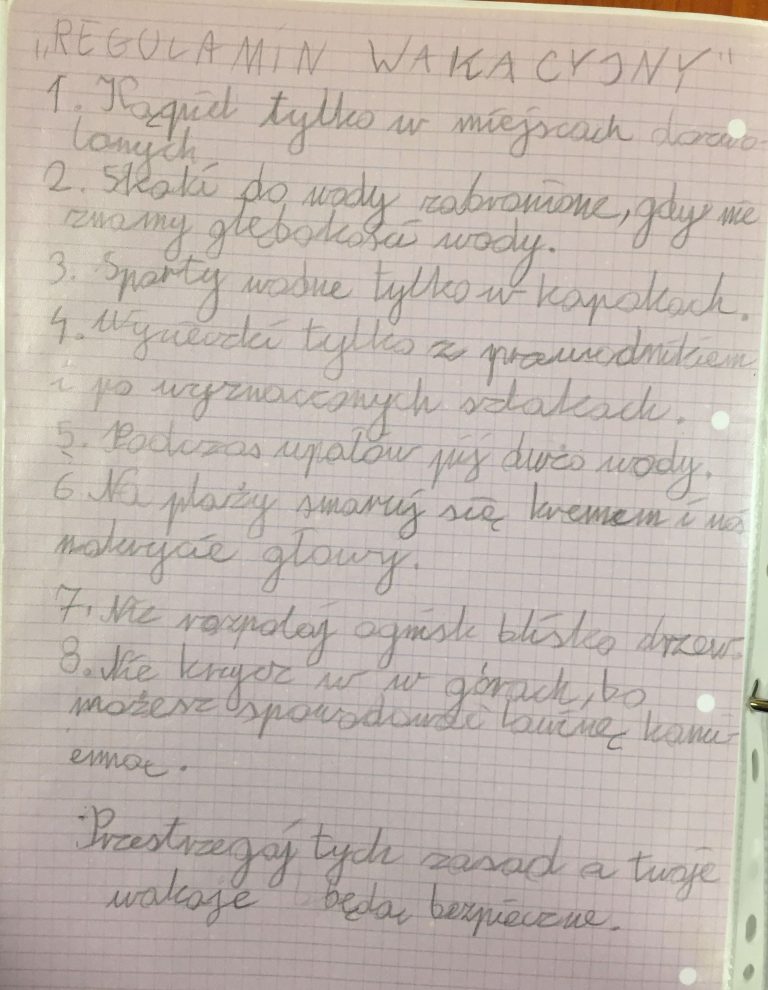 "REGULAMIN WAKACYJNY"
1. Kąpiel tylko w miejscach dozwo-
lonych
2. Skoki do wody zabronione, gdy nie
znamy głębokości wody.
3. Sporty wodne tylko w kapokach.
4. Wycieczki tylko z przewodnikiem
i po wyznaczonych szlakach.
5. Podczas upałów pij dużo wody.
6 Na plaży smaruj się kremem i noś
nakrycie głowy.
7. Nie rozpalaj ognisk blisko drzew.
8. Nie krzycz w w górach, bo
możesz spowodować lawinę kami-
enną.
Przestrzegaj tych zasad a twoje
wakacje będą bezpieczne.